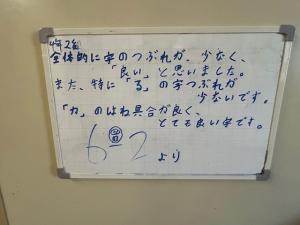 全体的に字のつぶれが、少なく、
「良い」と思いました。
また、特に「る」の字つぶれが
少ないです。
「カ」のはね具合が良く、
とても良い字です。
6-2 より